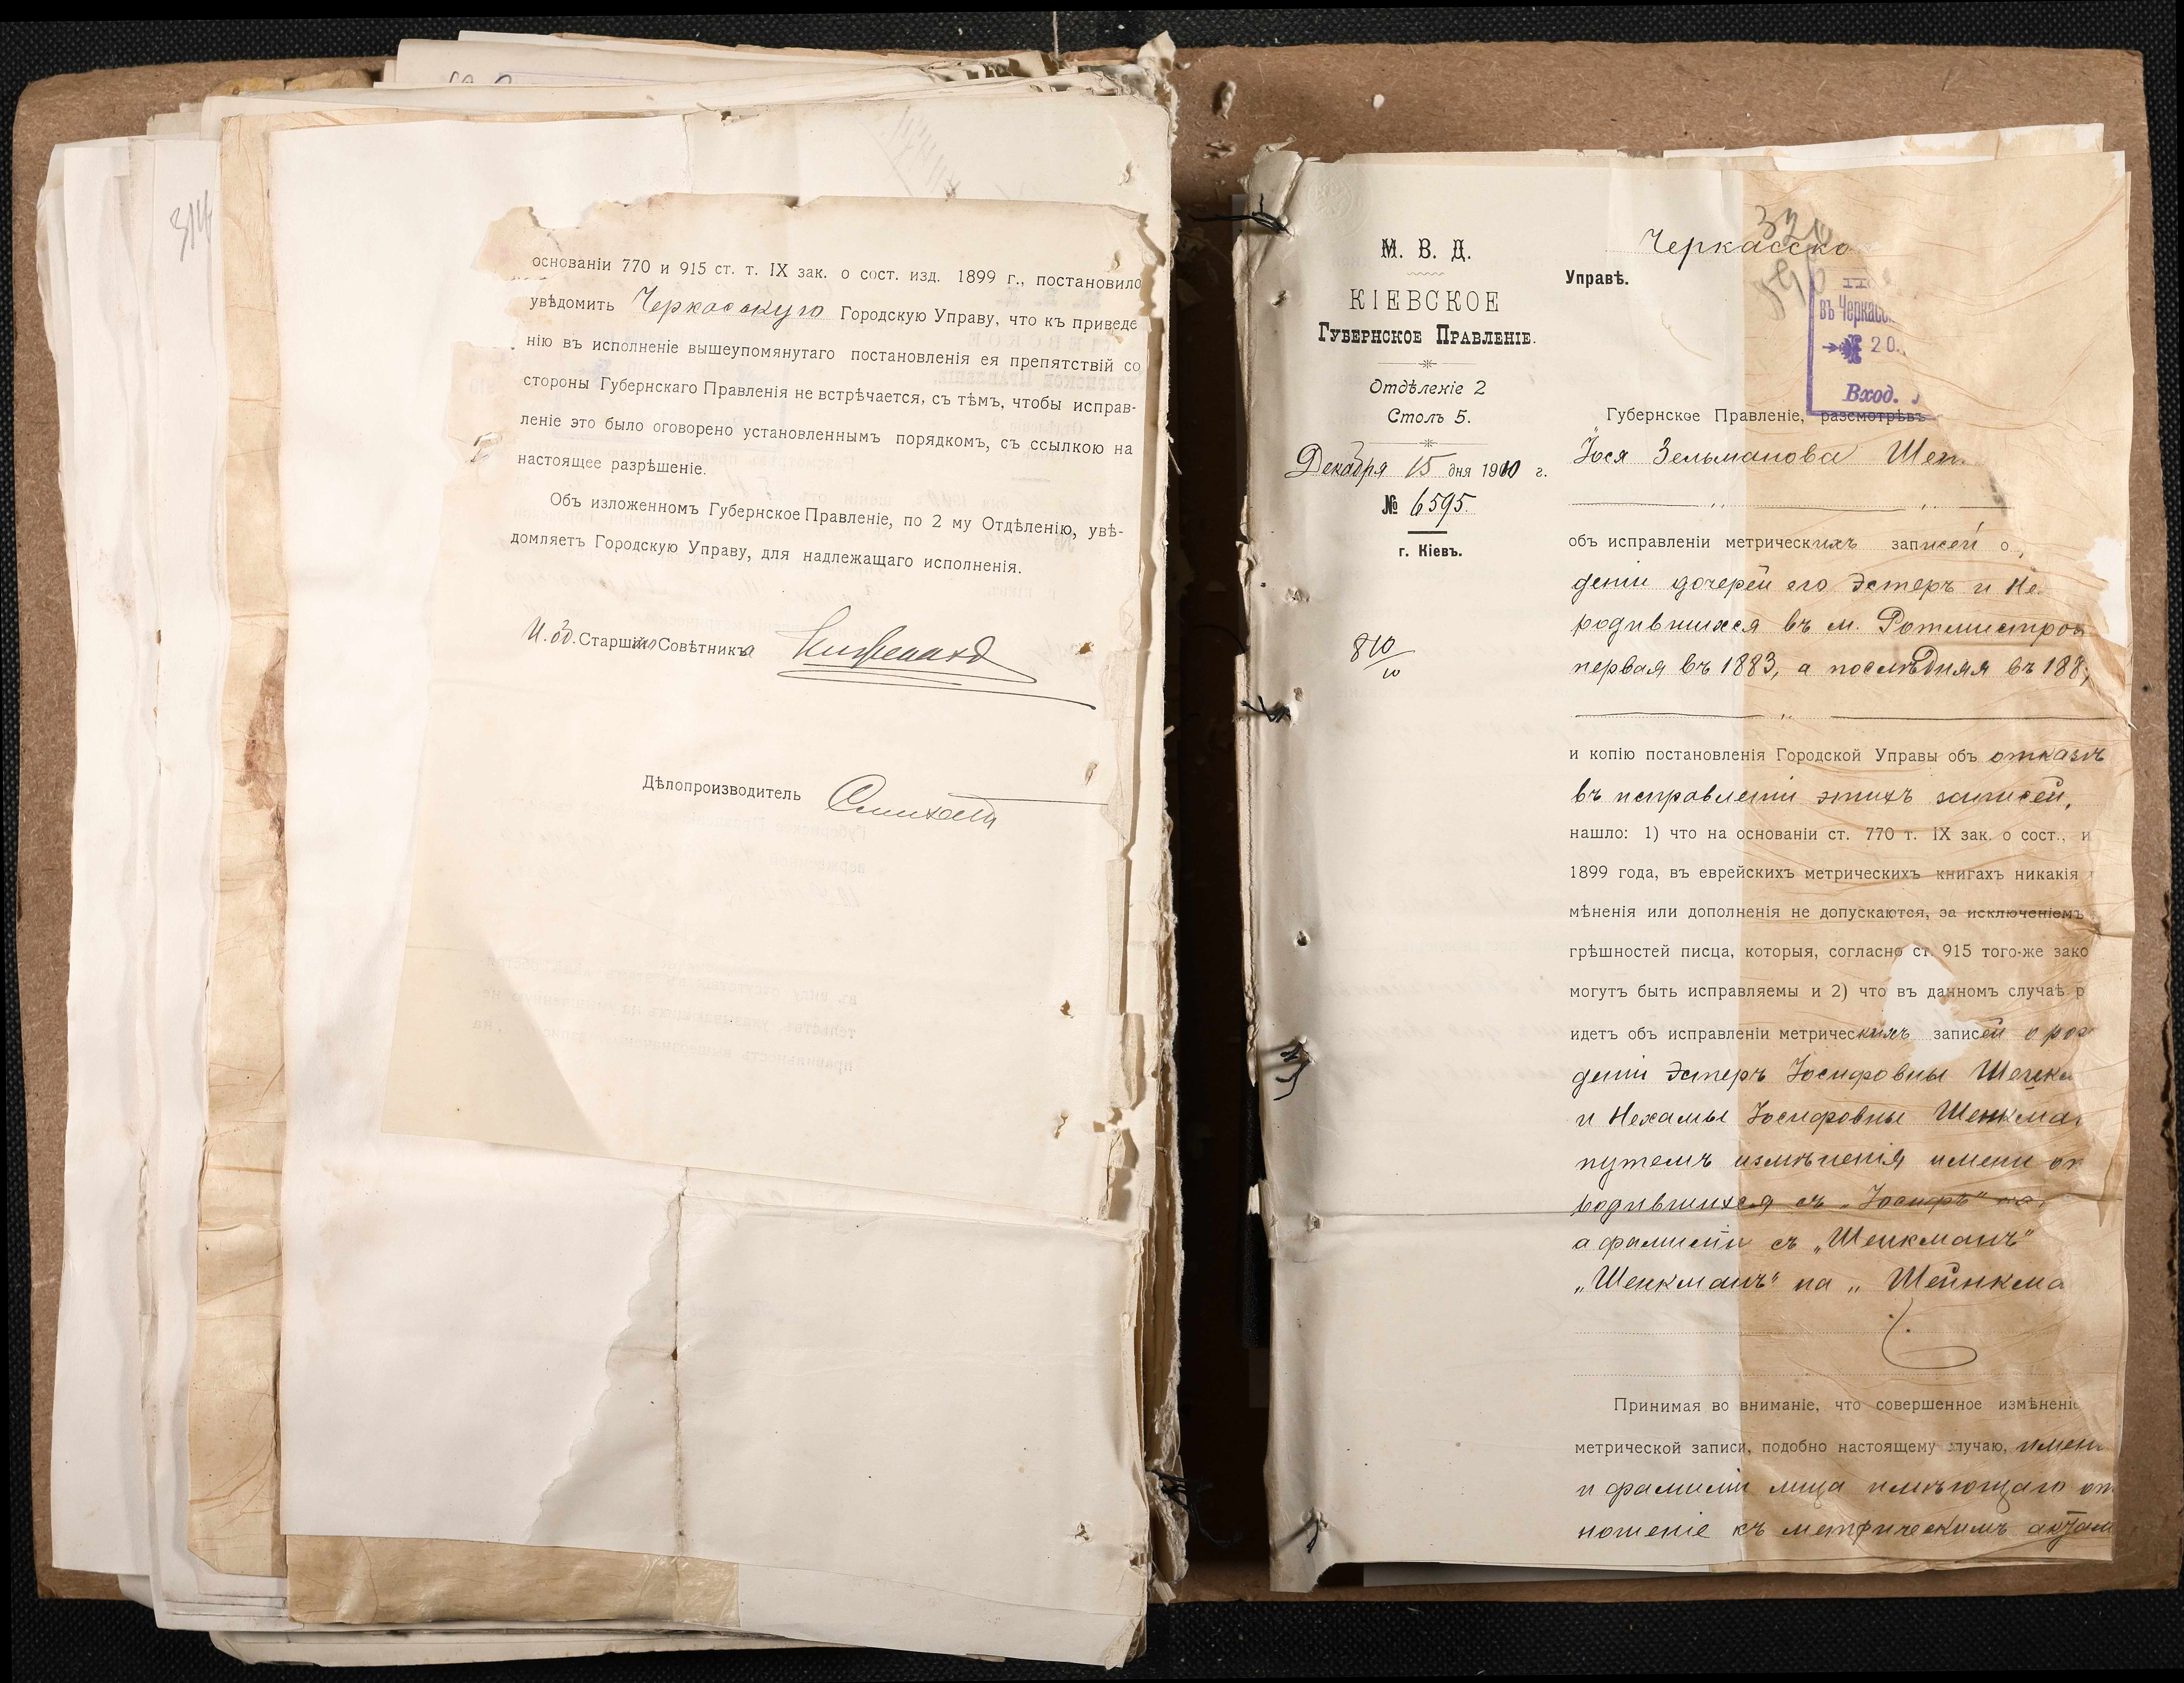 314
основаніи 770 и 915 ст. т. IX зак. о сост. изд. 1899 г., постановило
увѣдомить Черкасскую Городскую Управу, что къ приведе
нію въ исполненіе вышеупомянутаго постановленія ея препятствій со
стороны Губернскаго Правленія не встрѣчается, съ тѣмъ, чтобы исправ-
леніе это было оговорено установленнымъ порядкомъ, съ ссылкою на
настоящее разрѣшеніе.
Объ изложенномъ Губернское Правленіе, по 2 му Отдѣленію, увѣ-
домляетъ Городскую Управу, для надлежащаго исполненія.
И. об. Старшаго Совѣтника
Дѣлопроизводитель
М. В. Д.
КІЕВСКОЕ
Губернское Правленіе.
Отдѣленіе 2
Столъ 5.
Декабря 15 дня 1910 г.
№ 6595.
г. Кіевъ.
810/10
Черкасско
Управѣ.
въ Черкасс
20.
Вход.
Губернское Правленіе, разсмотрѣвъ
Іося Зельманова Шен
объ исправленіи метрическихъ записей о
деніи дочерей его Эстеръ и Не
родившихся въ м. Ротмистров
первая въ 1883, а послѣдняя въ 188
и копію постановленія Городской Управы объ отказѣ
въ исправленіи этихъ записей,
нашло: 1) что на основаніи ст. 770 т. IX зак. о сост., и
1899 года, въ еврейскихъ метрическихъ книгахъ никакія
мѣненія или дополненія не допускаются, за исключеніемъ
грѣшностей писца, которыя, согласно ст. 915 того-же зако
могутъ быть исправляемы и 2) что въ данномъ случаѣ р
идетъ объ исправленіи метрическихъ записей о рож
деніи Эстеръ Іосифовны Шенкм
и Нехамы Іосифовны Шенкма
путемъ измѣненія имени от
родившихся съ „Іосифъ" на
а фамиліи съ „Шенкманъ"
„Шенкманъ" на „Шейнкма
Принимая во вниманіе, что совершенное измѣненіе
метрической записи, подобно настоящему случаю, имени
и фамиліи лица имѣющаго от
ношеніе къ метрическимъ актам